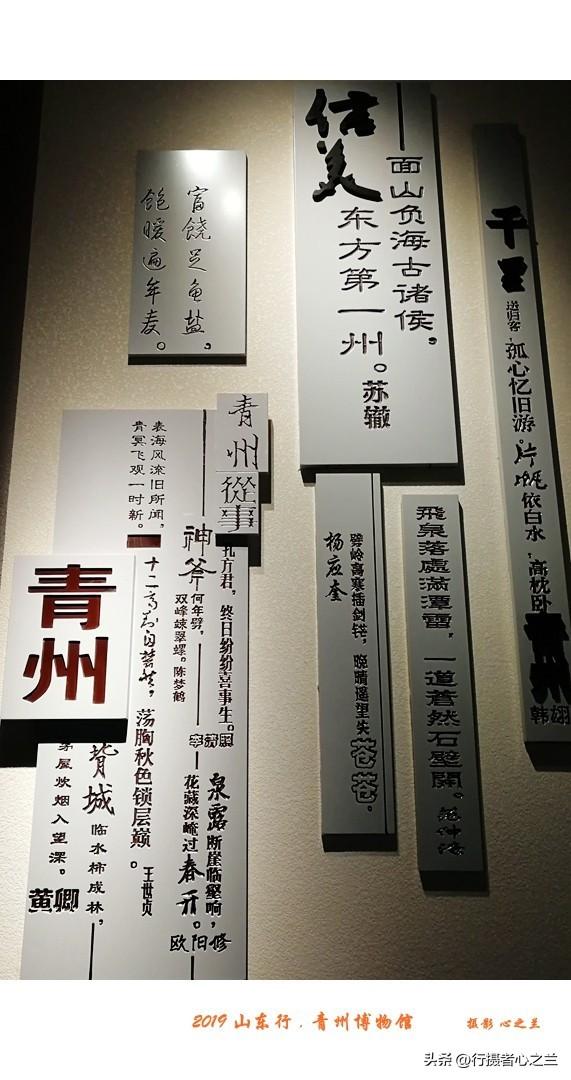 富饶足鱼盐，
饱暖遍牟麦。
信美
面山负海古诸侯，
东方第一州。苏辙
千里
送归客，孤心忆旧游。片帆依白水，高枕卧
青州
韩翃
表海风流旧所闻，
青冥飞观一时新。
青州
從事
孔方君，终日纷纷喜事生。
李清照
神斧
何年劈，
双峰竦翠螺。陈梦鹤
青州
荡胸秋色锁层巅。
王世贞
臨水柿成林，
茅屋炊烟入望深。
黄卿
泉露
断崖临壑响，
花藏深崦过
春开。
欧阳修
劈岭高寒插剑铓，晚晴遥望失
苍苍。
杨应奎
飛泉落處滿潭雷，
一道蒼然石壁開。
2019 山东行．青州博物馆
摄影 心之兰
头条 @行摄者心之兰